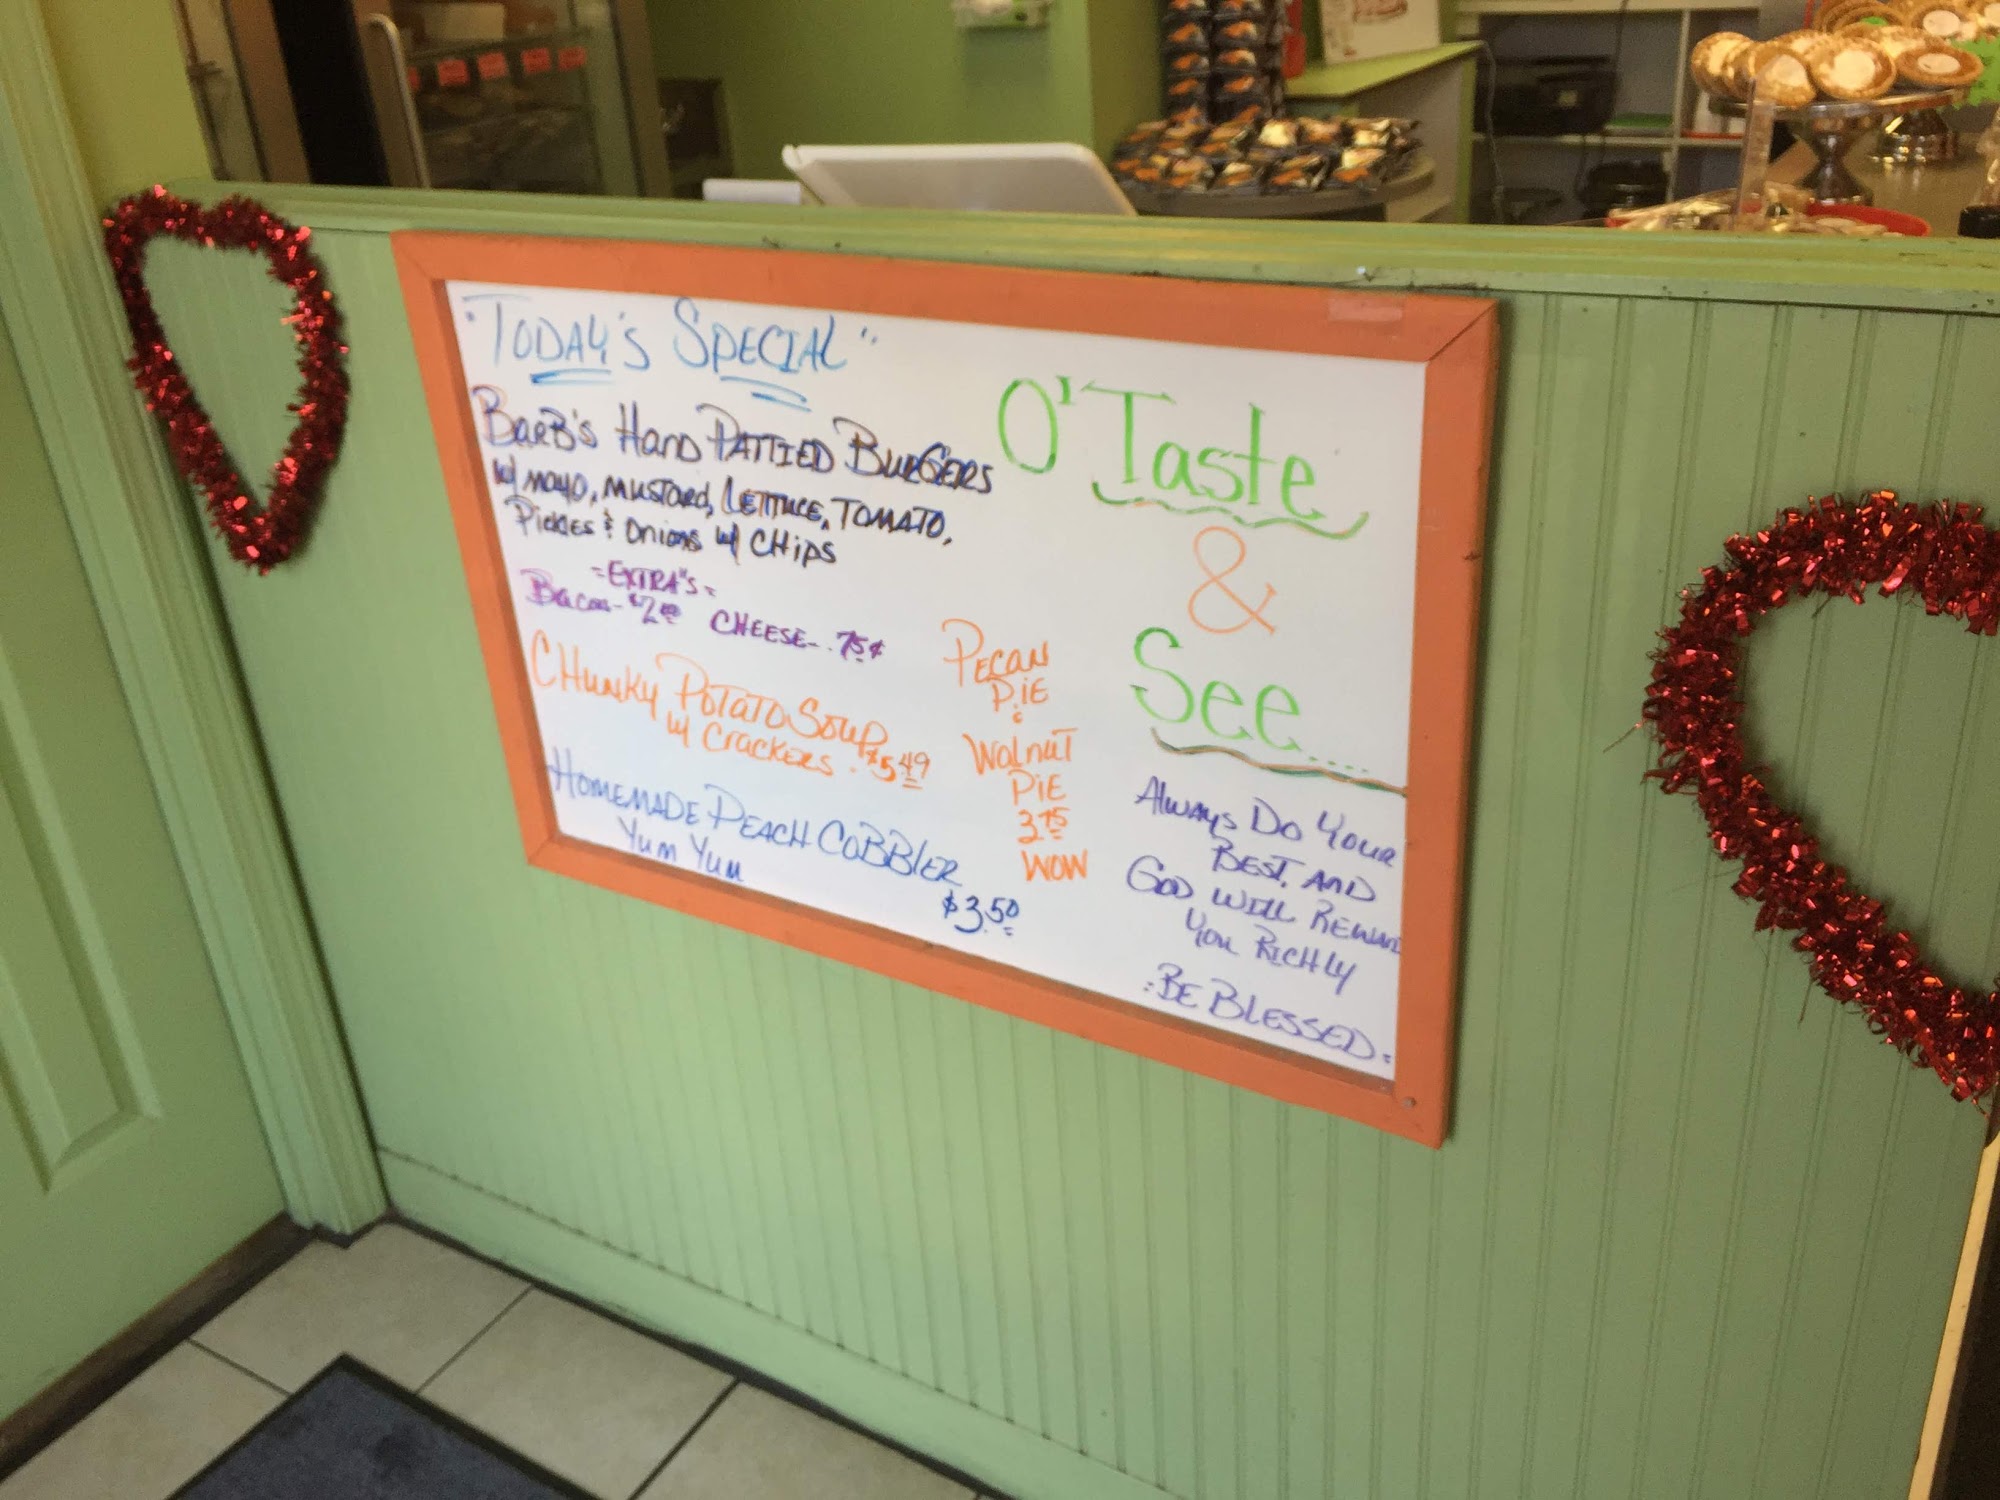 "Today's Special"
Barb's Hand Pattied Burgers
w/ mayo, mustard, Lettuce, Tomato,
Pickles & Onions w/ Chips
=Extra's=
Bacon-$2.00 Cheese-.75¢
Chunky Potato Soup
w/ Crackers. $5.49
Homemade Peach Cobbler
Yum Yum
$3.50
Pecan
Pie
&
Walnut
Pie
3.75
Wow
O' Taste
&
See.....
Always Do Your
Best, and
God will Reward
You Richly
=Be Blessed=